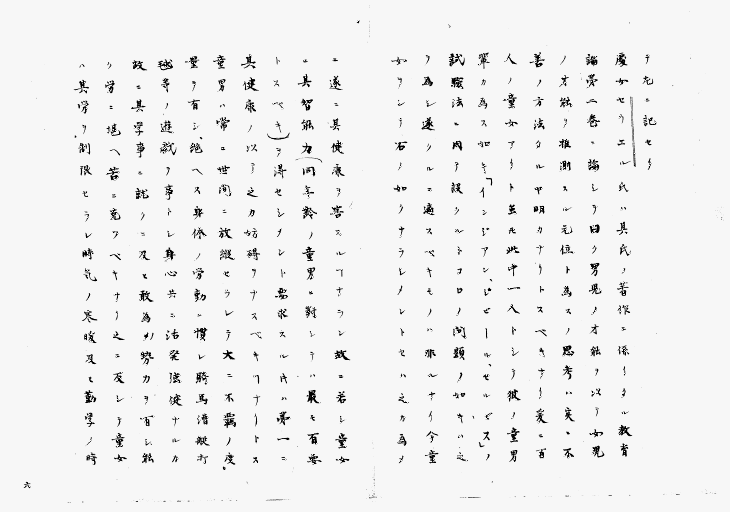 ヲ左ニ記セリ
慶女セウエル氏ハ其氏ノ著作ニ係リタル教育
論第二巻ニ論シテ曰ク男児ノ才能ヲ以テ女児
ノ才能ヲ推測スル元位ト為スノ思考ハ実ニ不
善ノ方法タルヤ明カナリトスベキナリ爰ニ百
人ノ童女アリト雖モ此中一人トシテ彼ノ童男
輩カ為ス如キ「インジアン、シビール、セルビス」ノ
試験法ニ因テ設クルトコロノ問題ノ如キハ之
ヲ為シ遂クルニ適スベキモノハ非ルナリ今童
女ヲシテ右ノ如クナラシメントセハ之カ為メ
ニ遂ニ其健康ヲ害スルヿナラン故ニ若シ童女
ニ其智能力(同年齢ノ童男ニ対シテハ最モ百要
トスベキ)ヲ得セシメント要求スル片ハ第一ニ
其健康ノ以テ之カ妨碍ヲナスベキヿナリトス
童男ハ常ニ世間ニ放縦セラレテ大ニ不羈ノ度
量ヲ有シ、絶ヘス身体ノ労動ニ慣レ騎馬游艇打
毬等ノ遊戯ヲ事トシ身心共ニ活発強健ナルカ
故ニ其学事ニ就クニ及モ敢為ノ勢力ヲ百シ能
ク学ニ堪ヘ苦ニ克フベキナリ之ニ反シテ童女
ハ其学ヲ制限セラレ時気ノ寒暖及モ勤学ノ時
六